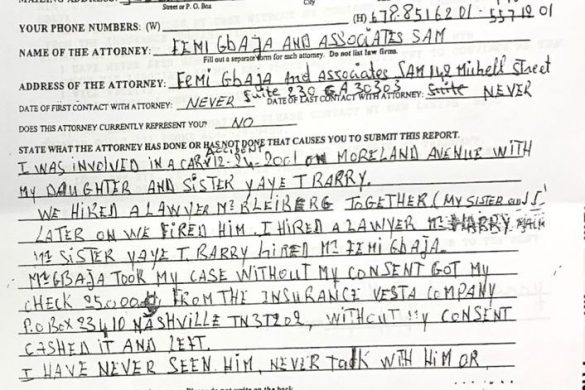 MAILING ADDRESS:
Street or P. O. Box City
YOUR PHONE NUMBERS: (W) (H) 678-8516201 - 5571201
NAME OF THE ATTORNEY: FEMI GBAJA AND ASSOCIATES SAM
Fill out a separate form for each attorney. Do not list law firms.
ADDRESS OF THE ATTORNEY: FEMI GbAJA And ASSOCIATES SAM 142 Michell Street
Suite 230 GA 30303
DATE OF FIRST CONTACT WITH ATTORNEY: NEVER DATE OF LAST CONTACT WITH ATTORNEY: NEVER
DOES THIS ATTORNEY CURRENTLY REPRESENT YOU? NO
STATE WHAT THE ATTORNEY HAS DONE OR HAS NOT DONE THAT CAUSES YOU TO SUBMIT THIS REPORT.
ACCIDENT
I WAS INVOLVED IN A CAR 12-24-2001 ON MORELAND AVENUE WITH
MY DAUGHTER AND SISTER YAYE T BARRY.
WE HIRED A LAWYER Mr KLEIBERG TOGETHER (MY SISTER and I)
LATER ON WE FIRED HIM. I HIRED A LAWYER
SISTER YAYE T. BARRY HIRED Mr FEMI GbAJA.
Mr GBAJA TOOK MY CASE WITHOUT MY CONSENT GOT MY
CHECK 25,000 FROM THE INSURANCE VESTA COMPANY
P.O BOX 23410 NASHVILLE TN 37202, WITHOUT MY CONSENT
CASHED IT AND LEFT.
I HAVE NEVER SEEN HIM, NEVER TALK WITH HIM OR